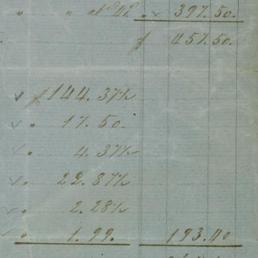 " " 397.50.
f 144.37½
" 17.50.
" 4.37½
" 22.87½
" 2.28½
" 1.99. 193.40